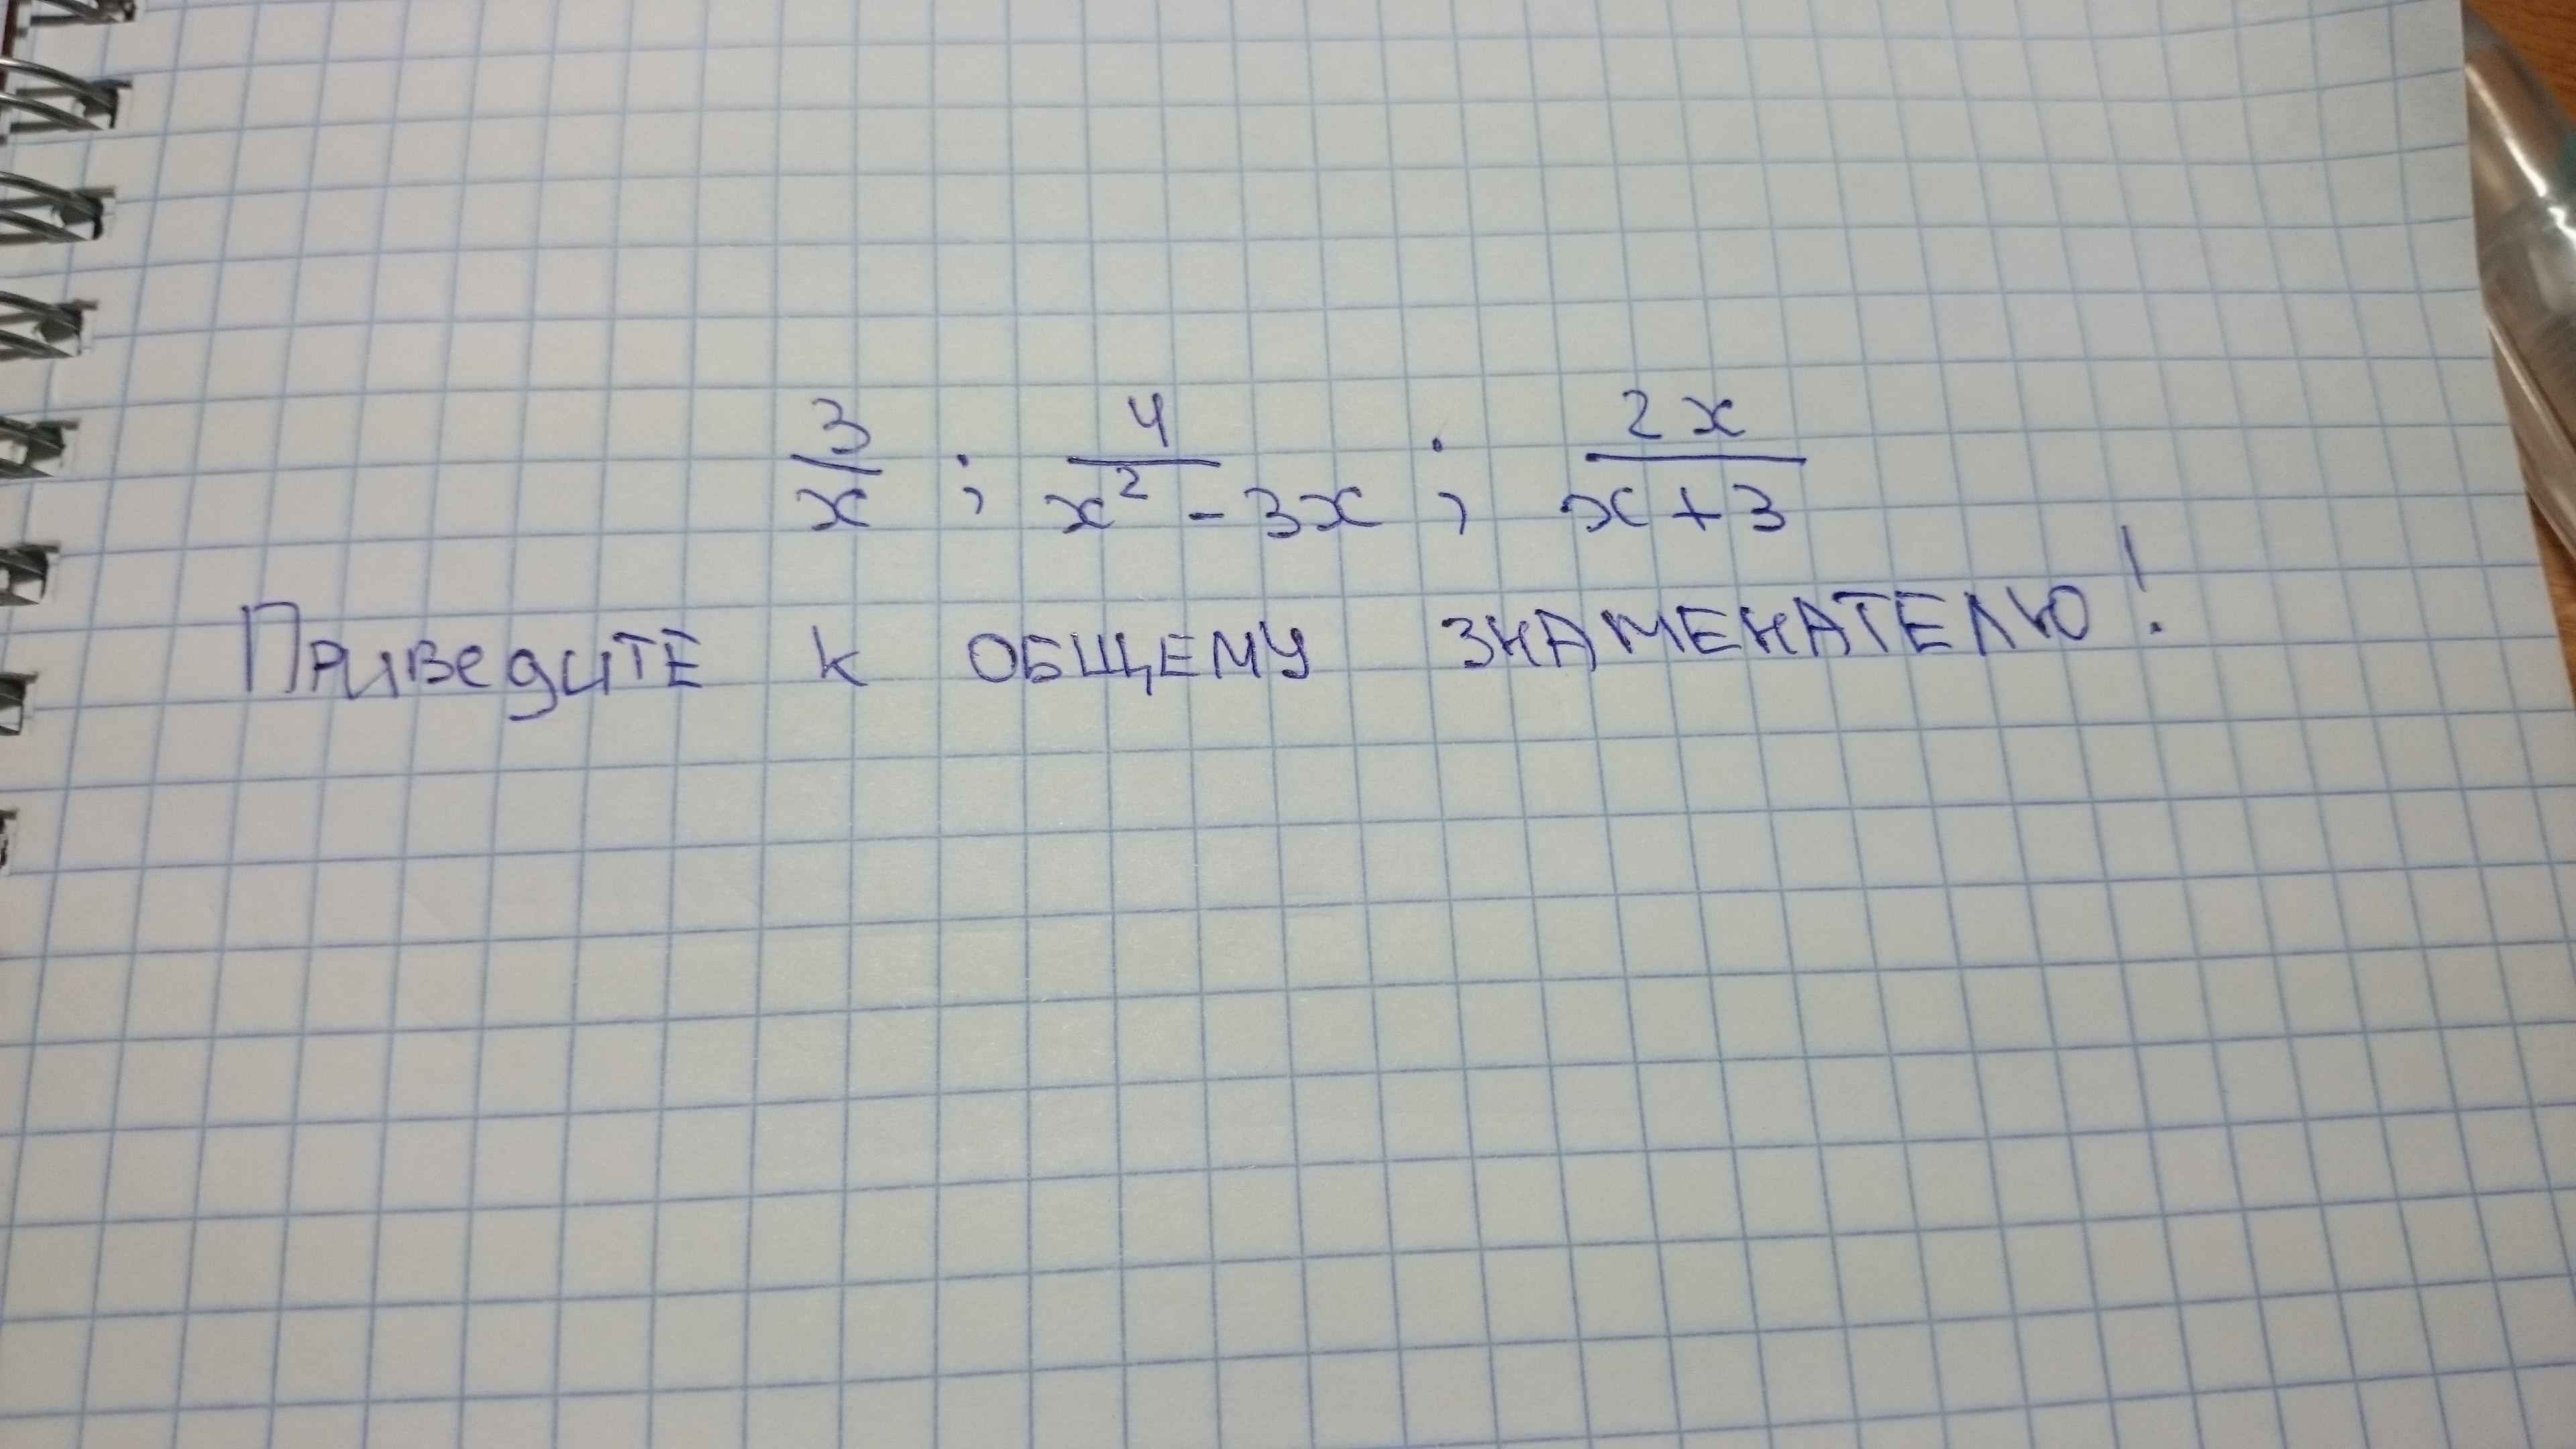 3/x ; 4/(x² - 3x) ; 2x/(x + 3)
Приведите к общему знаменателю!